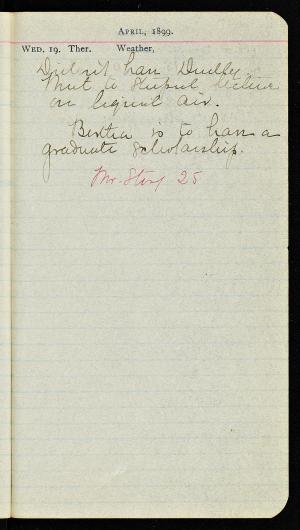 April, 1899.
Wed. 19. Ther. Weather,
Didn't have Dudley.
Went to stupid lecture
on liquid air.
Bertha is to have a
graduate scholarship.
Mr. 25